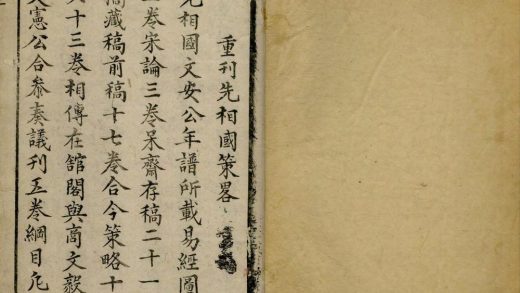 重刊先相國策畧
先相國文安公年譜所載易經圖
卷宋論三卷呆齋存稿二十一
藏稿前稿十七卷合今策略十
十三卷相傳在舘閣與商文毅
憲公合叅奏議刊五卷綱目凢